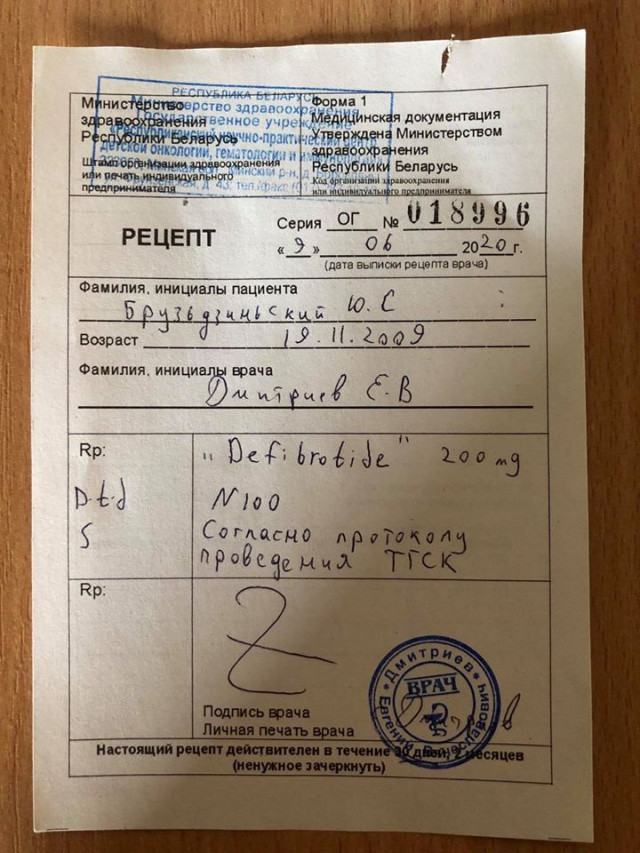 РЕСПУБЛИКА БЕЛАРУСЬ
Министерство здравоохранения
Государственное учреждение
«Республиканский научно-практический центр
детской онкологии, гематологии и иммунологии»
Министерство
здравоохранения
Республики Беларусь
Штамп организации здравоохранения
или печать индивидуального
предпринимателя
Форма 1
Медицинская документация
Утверждена Министерством
здравоохранения
Республики Беларусь
Код организации здравоохранения
или индивидуального предпринимателя
РЕЦЕПТ
Серия ОГ № 018996
«9» 06 2020 г.
(дата выписки рецепта врача)
Фамилия, инициалы пациента
Брузьдзиньский Ю.С
Возраст 19.11.2009
Фамилия, инициалы врача
Дмитриев Е.В
Rp: "Defibrotide" 200 mg
D.t.d N100
S Согласно протоколу
проведения ТГСК
Rp:
Подпись врача
Личная печать врача
Дмитриев
Евгений Вячеславович
ВРАЧ
Настоящий рецепт действителен в течение 30 дней, 2 месяцев
(ненужное зачеркнуть)